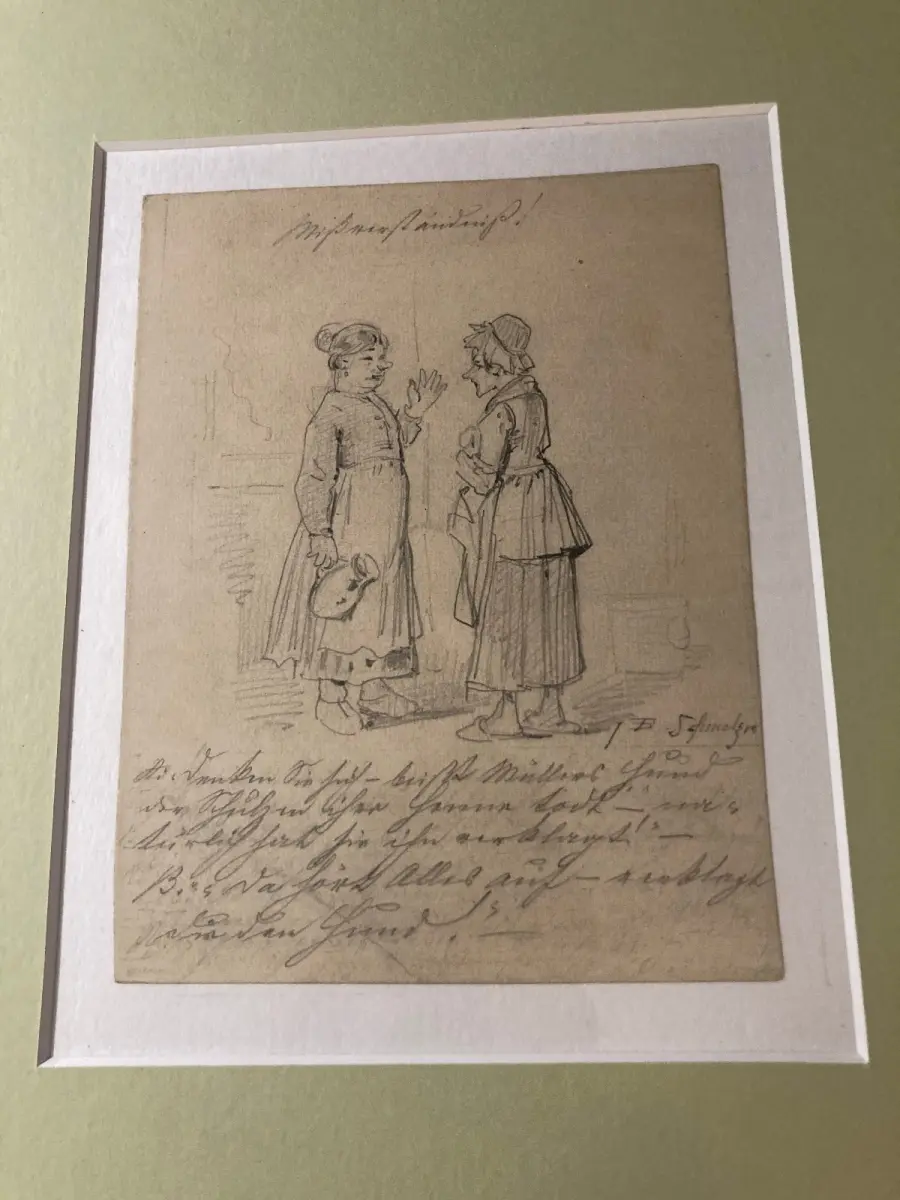 Mißverständniß!
J B Schmelzer
A: „Denken Sie sich – beißt Müllers Hund
der Schulzen ihre Henne todt – na-
türlich hat sie ihn verklagt!" –
B.: „Da hört Alles auf – verklagt
den Hund!" –